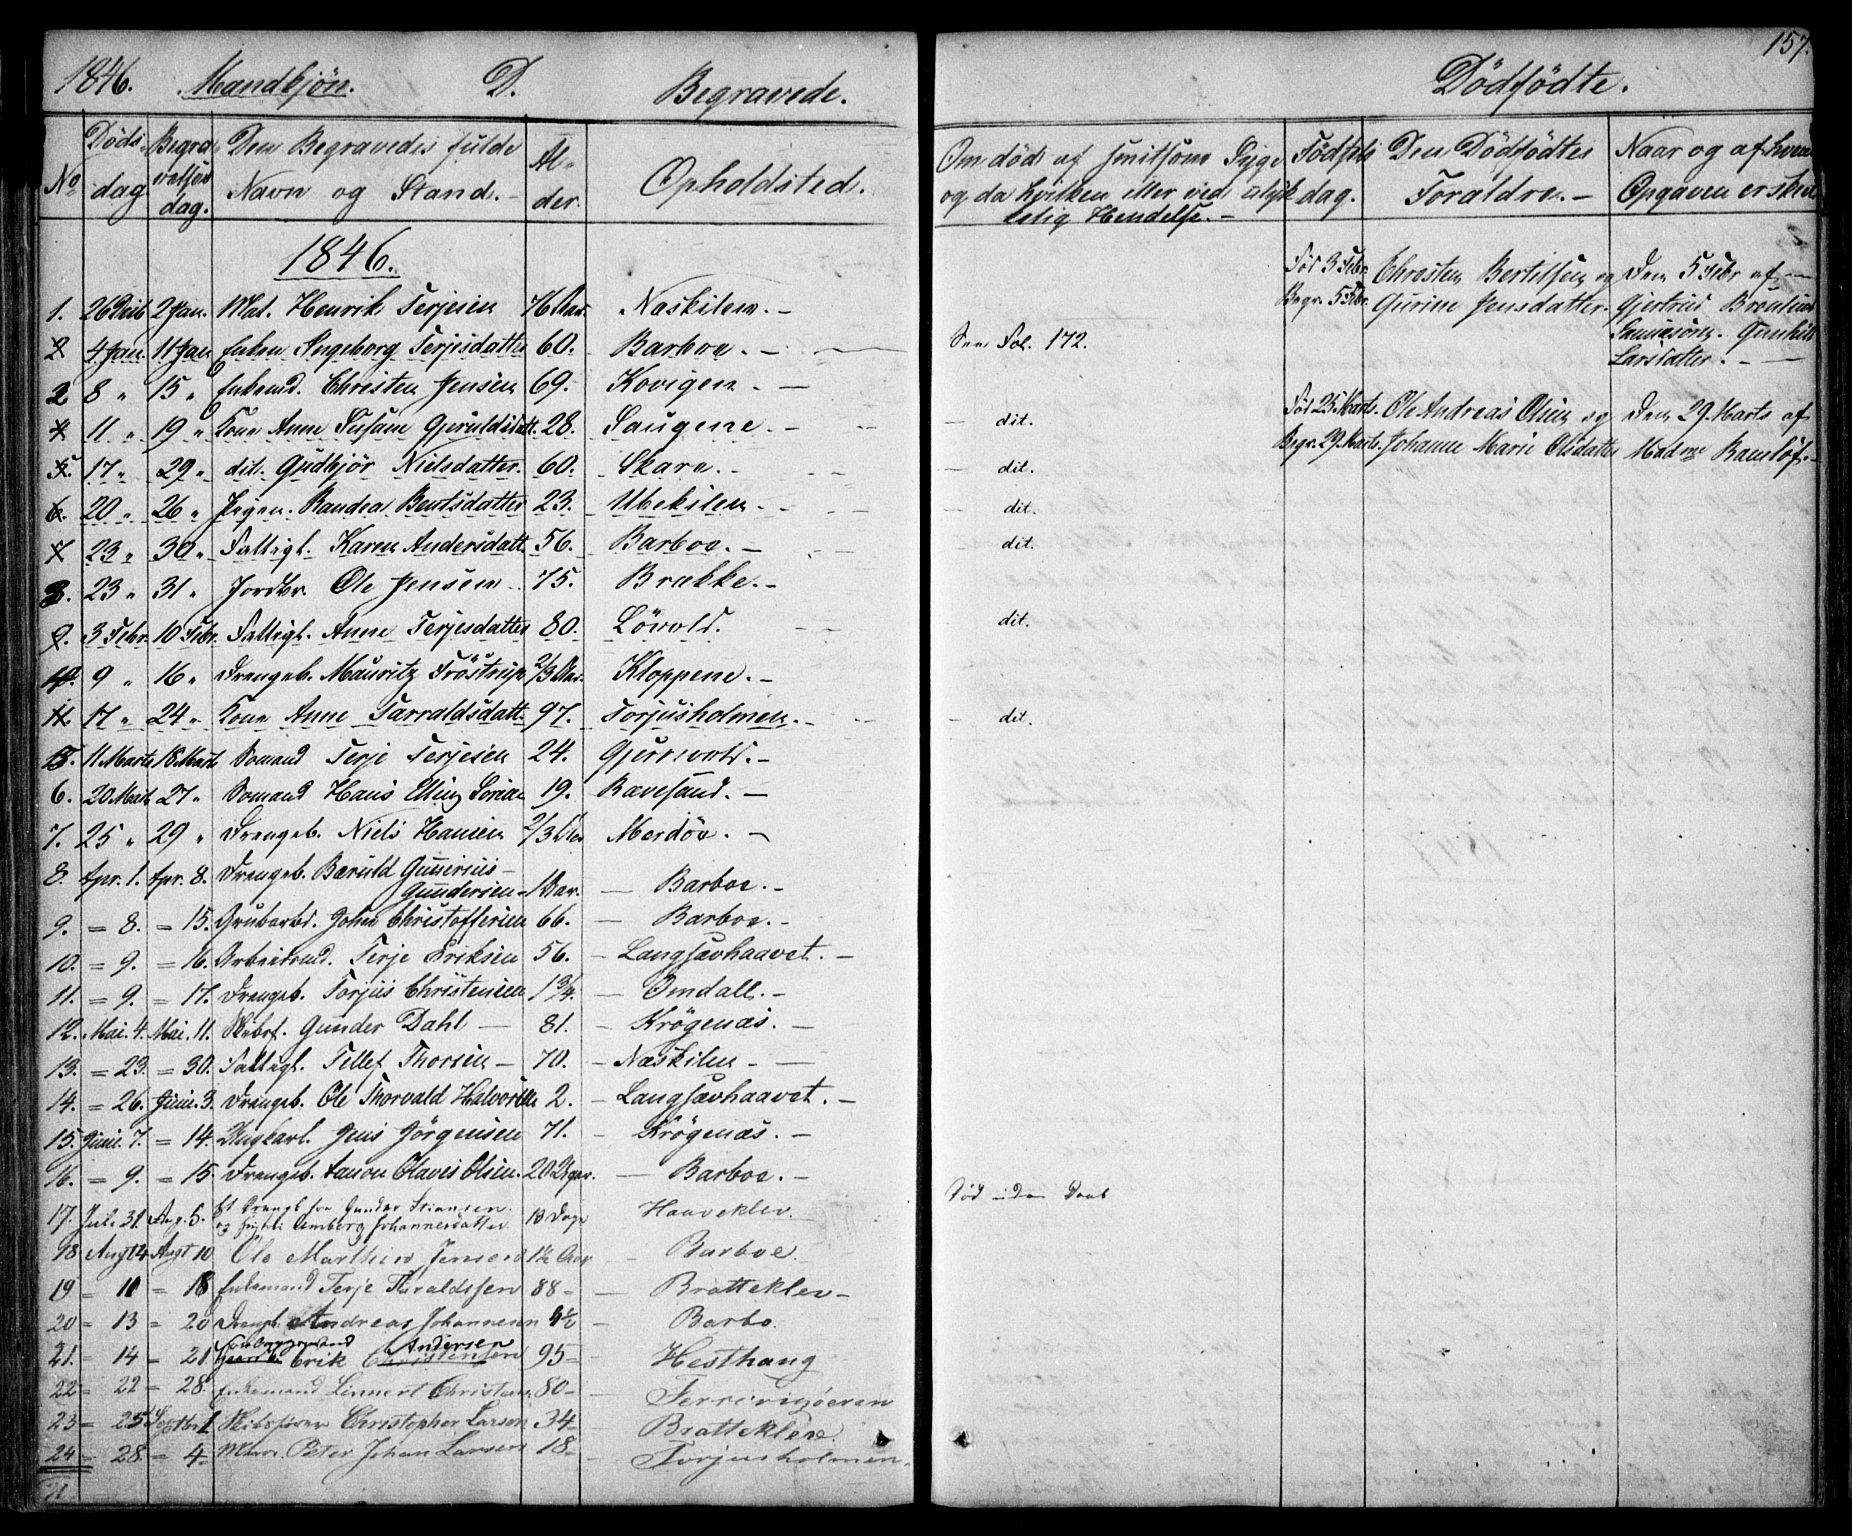 1846. Mandkjön. D. Begravede.
No Döds-dag Begravelses dag. Den Begravedes fulde Navn og Stand. - Al-der. Opholdsted.
1846.
1. 26 Deib 2 Jan. Mat. Henrik Terjesen 76 Aar. Naskilen. -
2 4 Jan. 11 Jan Enken Ingeborg Terjesdatter 60. Barboe. -
2 8 " 15 " Enkemd. Christen Jensen 69. Kovigen. -
4 11 " 19 " Kone Anne Susane Gjeruldsdatt. 28. Saugene. -
5. 17 " 29 " dit. Gudbjör Nielsdatter. 60. Skara. -
6. 20 " 26 " Pigen. Randea Bentsdatter 23. Ubekilen. -
7 23 " 30 " Fattigl. Karen Andersdatt. 56. Barboe. -
3. 23 " 31 " Jordbr. Ole Jensen 75. Brække. -
9. 3 Febr. 10 Febr. Fattigl. Anne Terjesdatter 80. Lövold.
9 " 16 " Drengeb. Mauritz Fröstrup 2/3 Aar. Kloppene. -
11. 17 " 24 " Kone Anne Tarraldsdatt. 97. Torjusholmen. -
5. 11 Marts 18 Marts Somand Terje Terjesen 24. Gjervold. -
6. 20 Marts 27 " Somand Hans Elling 19. Ravesand. -
7. 25 " 29 " Drengeb. Niels Hansen 2/3 Merdöe. -
8. Apr. 1. Apr. 8. Drengeb. Bæruld Gunerius-
Gundersen - 1 Aar. - Barboe. -
9. = 8. = 15. Grubarbd. John Christoffersen 66. - Barboe. -
10. = 9. = 16. Arbeidsmd. Terje Eriksen 56. - Langsævhaavet. -
11. = 9. = 17. Drengeb. Torjus Christensen 1 3/4. - Omdall. -
12. Mai. 4. Mai. 11. Skibsf. Gunder Dahl - 81. - Krögenæs. -
13. = 23. = 30. Fattigl. Tellef Thorsen - 70. - Næskilen -
14. = 26. Juni. 3. Drengeb. Ole Thorvald Halvorsen 2. - Langsævhaavet. -
15. Juni. 7. = 14. Ungkarl. Jens Jörgensen 71. - Krögenæs. -
16. = 9. = 15. Drengeb. Olavis Olsen. 20 Uger. - Barboe. -
17. Juli 31. Aug. 5. Et Drengb fra Gunder Stiansen.
og Hustr. Amberg Johannesdatter 13 Dage Haaveklev
18 Augt 4 Augt 10 Ole Marthin Jensen 1½ Aar - Barboe.
19 - 11 = 18 Enkemand Terje Tharaldssen 88 - - Bratteklev -
20 = 13 = 20 Drengb. Andreas Johannesen ½ - Barbo.
21. - 14 - 21. Andersen
Erik Christensen 95 - Hesthaug
22 - 22 = 28. Enkemand Lennert Christens. 80 - -
23 - 25 Septbr 1 Skibsförer Christopher Larsen 34 - Bratteklev.
24 - 28. - 4 - Peter Johan Larsen 18 - - Torjusholmen.
157.
Dödfödte.
Om död af smitsom Syge og da hvilken eller ved ulyk-kelig Hendelse. - Födsels dag. Den Dödfödtes Foraldre. - Naar og af hvem Opgaven er skeet
Föd 3 Febr. Christen Bertelsen og Den 5 Febr af -
Begr. 5 Febr. Gurine Jensdatter. Gjertrud
Gunhild
Larsdatter. -
See Fol. 172.
Föd 25 Marts. Ole Andreas Olsen og Den 29 Marts af
Begr. 29 Marts. Johanne Marie Olsdatter Madme Ramlöf. -
- dit.
- dit.
dit.
- dit.
dit.
- dit.
Död uden Daab